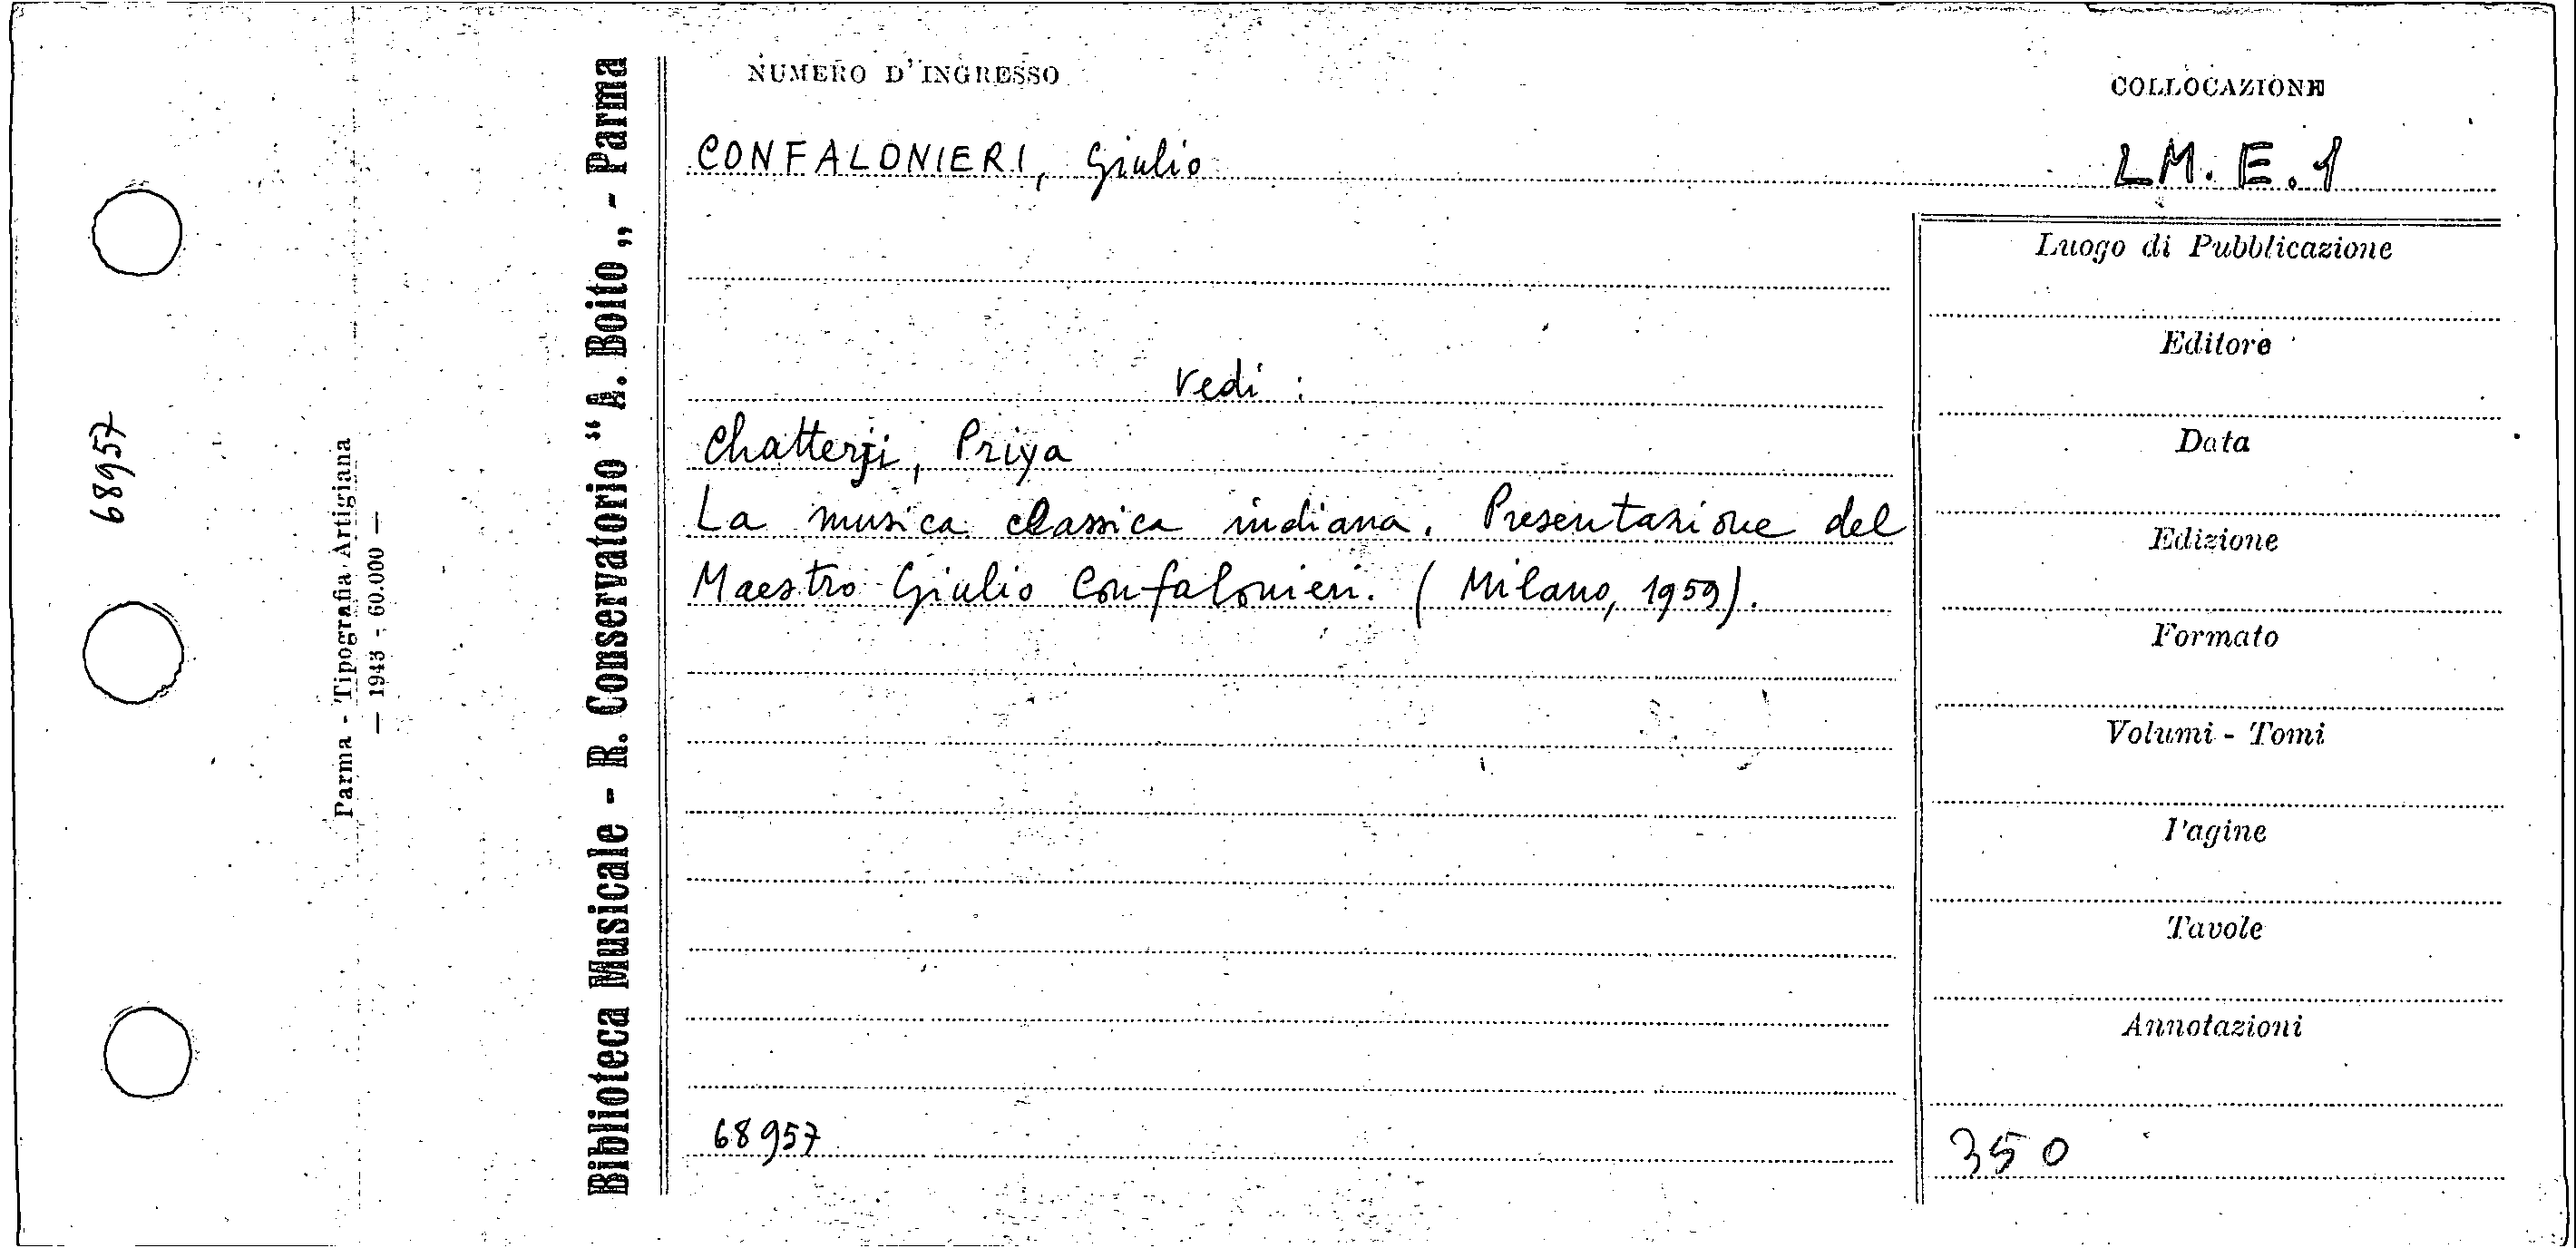 68957
Parma - Tipografia Artigiana
— 1943 - 60.000 —
Biblioteca Musicale - R. Conservatorio “A. Boito„ - Parma
NUMERO D'INGRESSO
COLLOCAZIONE
CONFALONIERI, Giulio
LM. E. 1
vedi :
Chatterji, Priya
La musica classica indiana. Presentazione del
Maestro Giulio Confalonieri. (Milano, 1959).
68957
Luogo di Pubblicazione
Editore
Data
Edizione
Formato
Volumi - Tomi
Pagine
Tavole
Annotazioni
350